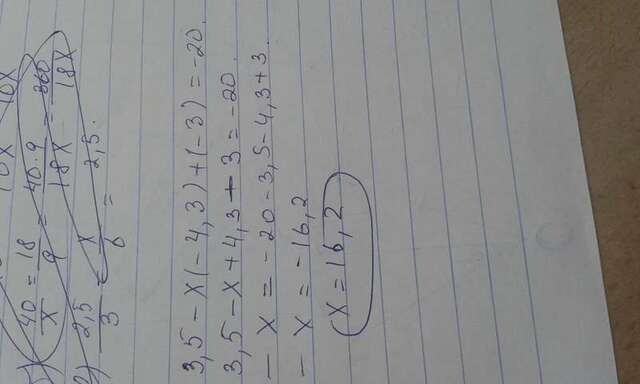 40/x = 18/9 = 40·9/18x
2) 2,5/3 = x/6 = 2,5.
3,5 - x(-4,3)+(-3) = -20.
3,5 - x + 4,3 - 3 = -20.
- x = -20 - 3,5 - 4,3 + 3.
- x = -16,2
x = 16,2